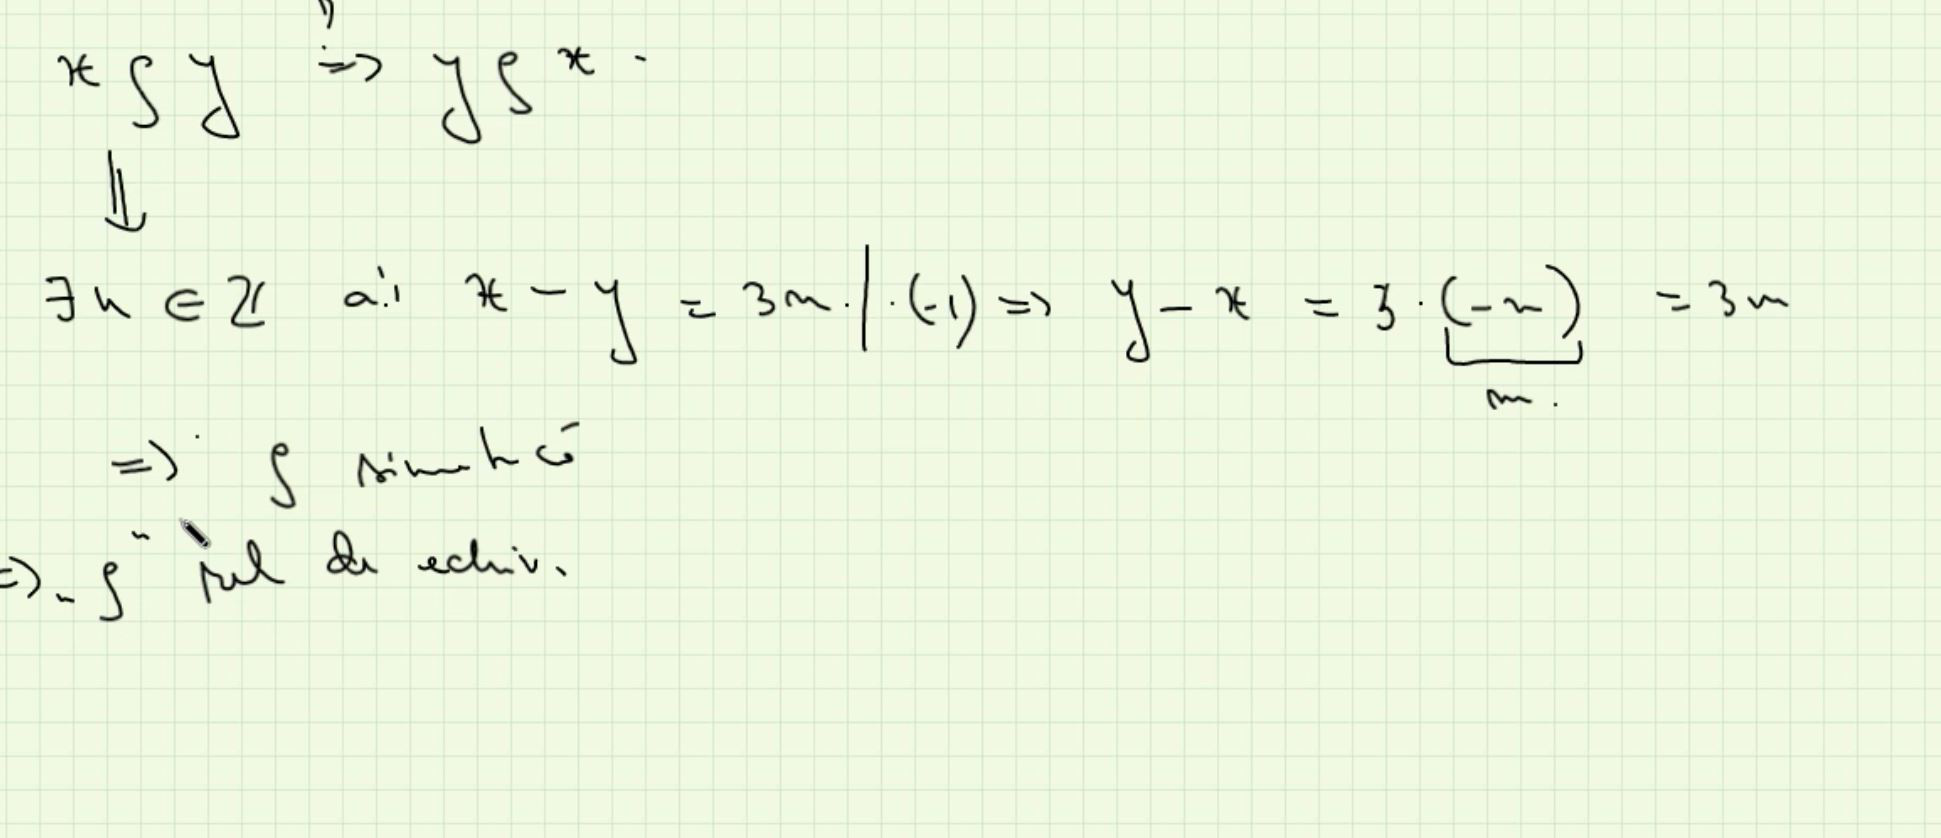 x ρ y => y ρ x .
⇓
∃ n ∈ ℤ a.i x - y = 3n . | · (-1) => y - x = 3 · (-n) = 3m
m .
=> ρ simetrică
=> „ρ" rel de echiv.